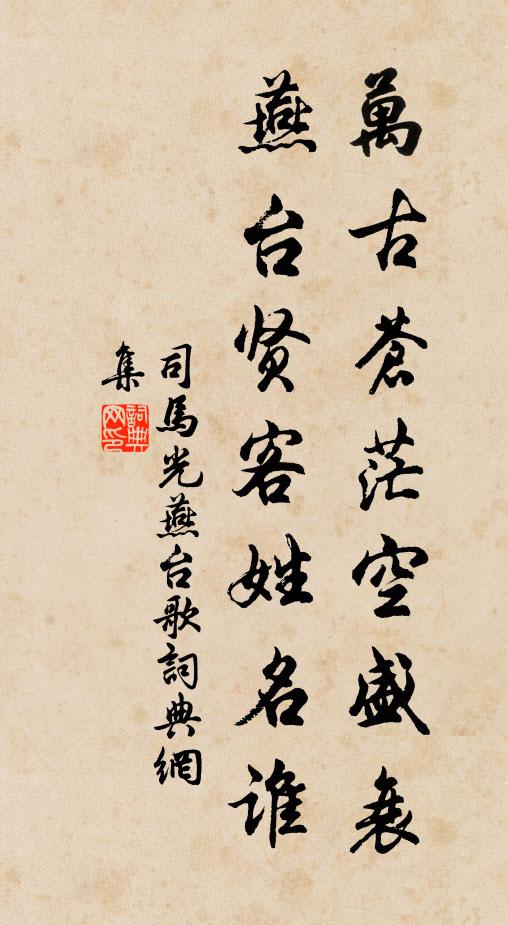 萬古蒼茫空盛衰
燕台贤客姓名誰
司馬光燕台歌詞典網
集
詞典网印